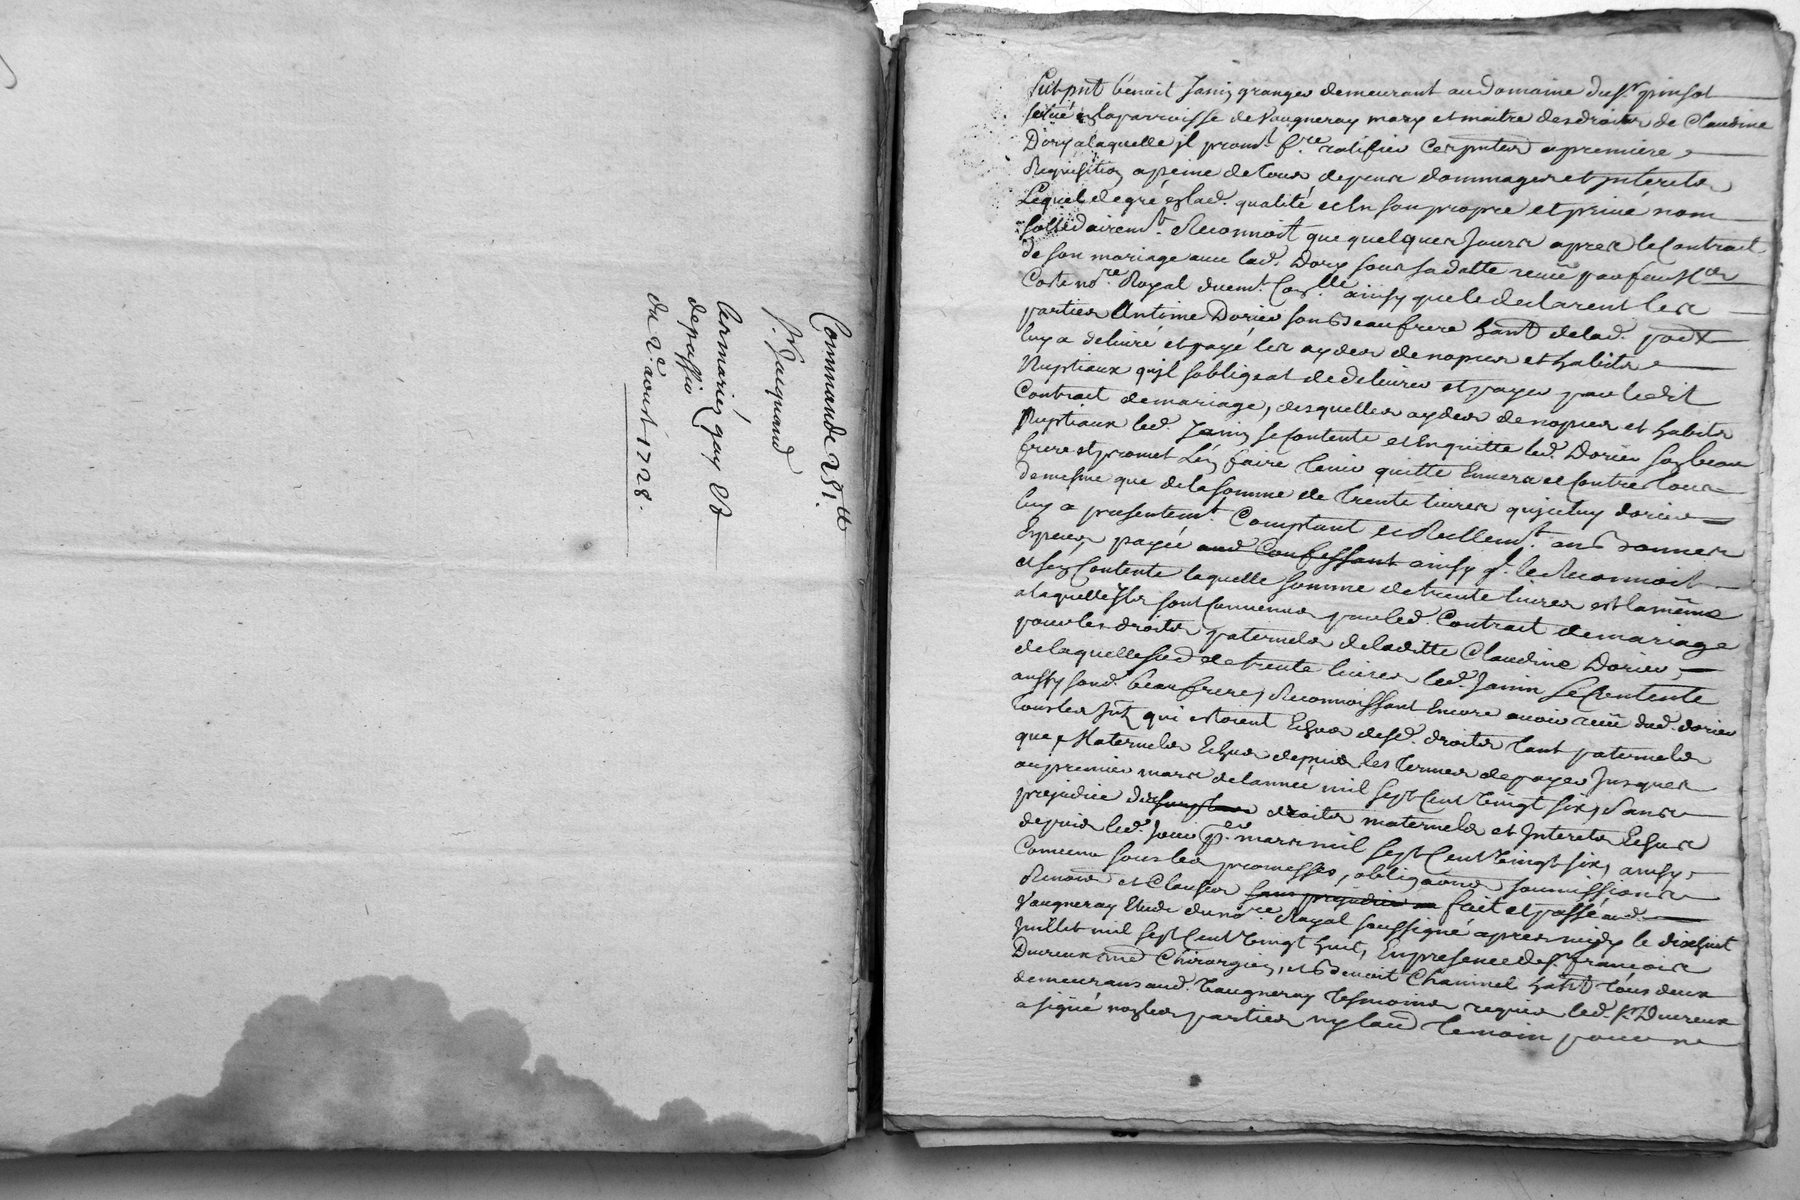 Commande 251.tt
Sr. Jacquand
les mariez guy et
depassio
du 2e aoust 1728.
fut pnt benoit Janin granger demeurant au domaine du Sr. pinsot
situé en la parroisse de Vaugneray mary et maitre des droits de Claudine
Dory a laquelle jl promt. fre. ratifier Ces pntes a premiere
Requisition a peine de tous depens dommages et jnterets
Lequel de gré en lad. qualité et En son propre et privé nom
sollidairemt. Reconnoit que quelques Jours apres le Contrait
de son mariage avec lad. Dory sous sa datte receu par feu Me
Coste nore. Royal duemt. Conlle. ainsy que le declarent les
parties Antoine Dorier son Beaufrere hant de lad. parx
luy a delivré et payé les aydes de nopces et habits
Nuptiaux qu'jl s'obligeat de delivrer et payer par ledit
Contrait de mariage, desquelles aydes de nopces et habits
Nuptiaux led. Janin se Contente et En quitte led. Dorier son beau
frere et promet L'en faire tenir quitte Envers et Contre tous
de mesme que de la somme de trente livres qu'jceluy dorier
luy a presentemt. Comptant et Reellemt. en Bonnes
Especes payée aud Confessant ainsy q. le Reconnoit
et s'en Contente laquelle somme de trente livres est la même
a laquelle jls sont Convenus par led. Contrait de mariage
pour les droits paternels de laditte Claudine Dorier,
de laquelle sud de trente livres led. Janin Se Contente
aussy sond. beaufrere, Reconnoissant Encore avoir receu dud. dorier
tous les jnts. qui estoient Echus desd. droits tant paternels
que Maternels Echus depuis les termes de payer Jusques
au premier mars de l'année mil sept Cent vingt six, sans
prejudice des droits maternels et Jnterets Echus
depuis led. Jour per. mars mil sept Cent vingt six, ainsy
Convenu sous les promesses, obligaons soumissions
Renons et Clauses sans prejudice fait et passé aud.
Vaugneray Etude du nore. Royal soussigné apres midy le dixhuit
Juillet mil sept Cent vingt huit, En presence de Sr. francois
Duvreux me Chirurgien, et Benoit Chaminel hant tous deux
demeurans aud. Vaugneray tesmoins requis led. Sr. Duvreux
a signé non les parties ny laud temoin pour ne